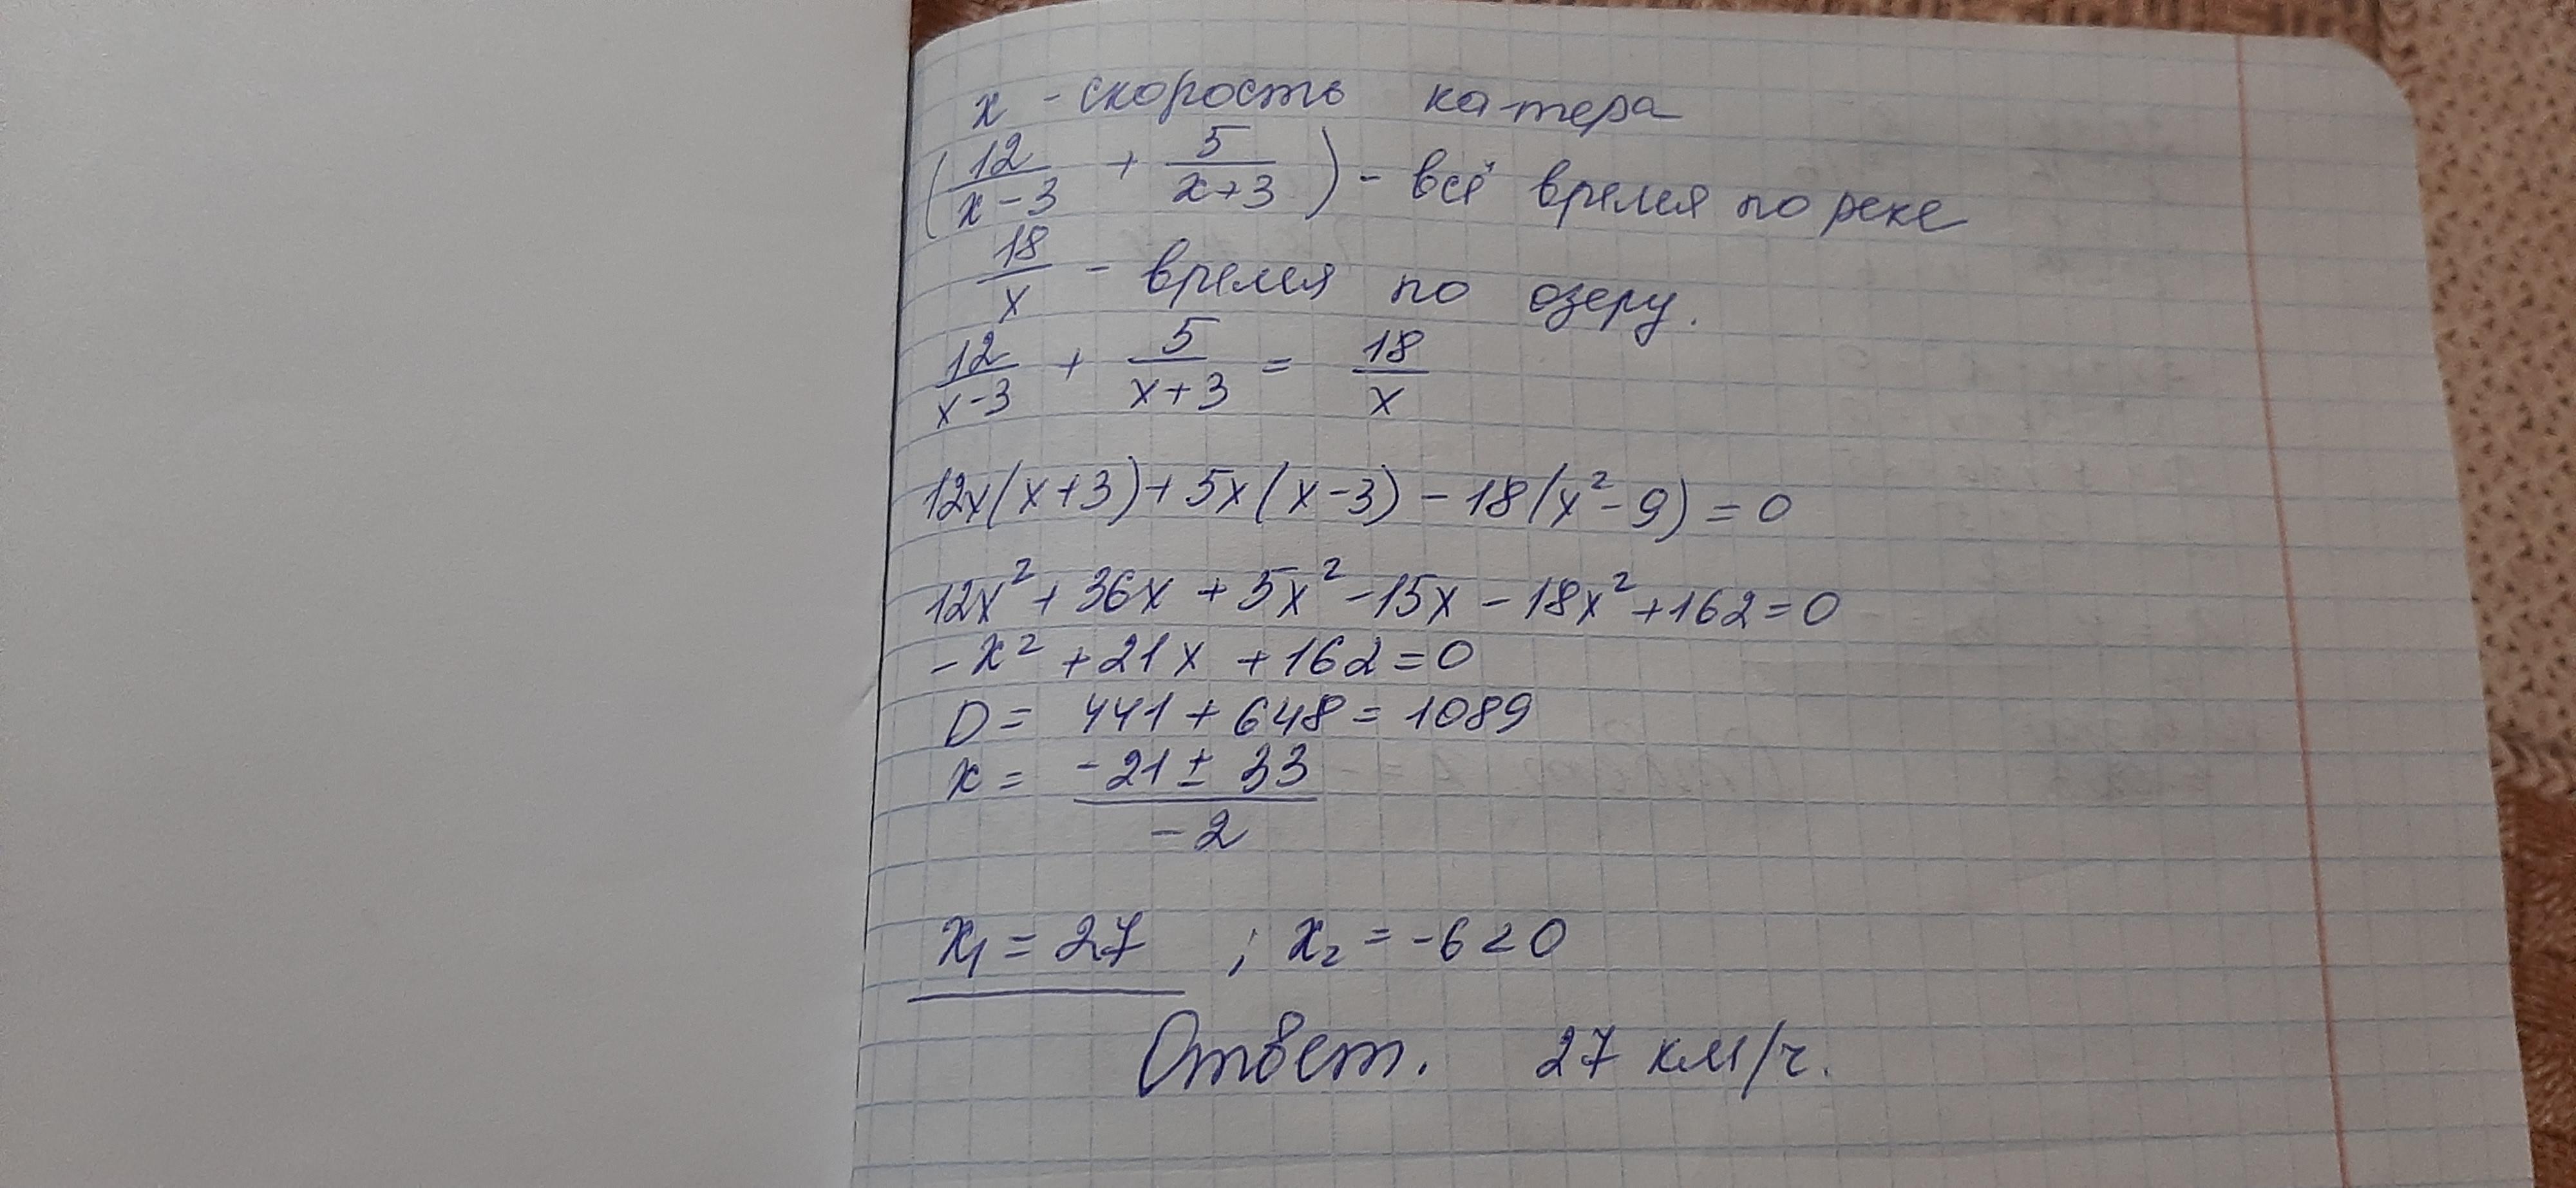 x - скорость катера
(12/(x-3) + 5/(x+3)) - всё время по реке
18/x - время по озеру.
12/(x-3) + 5/(x+3) = 18/x
12x(x+3)+5x(x-3)-18(x²-9)=0
12x²+36x+5x²-15x-18x²+162=0
-x²+21x+162=0
D= 441+648=1089
x= (-21±33)/(-2)
x₁=27 ; x₂=-6<0
Ответ. 27 км/ч.